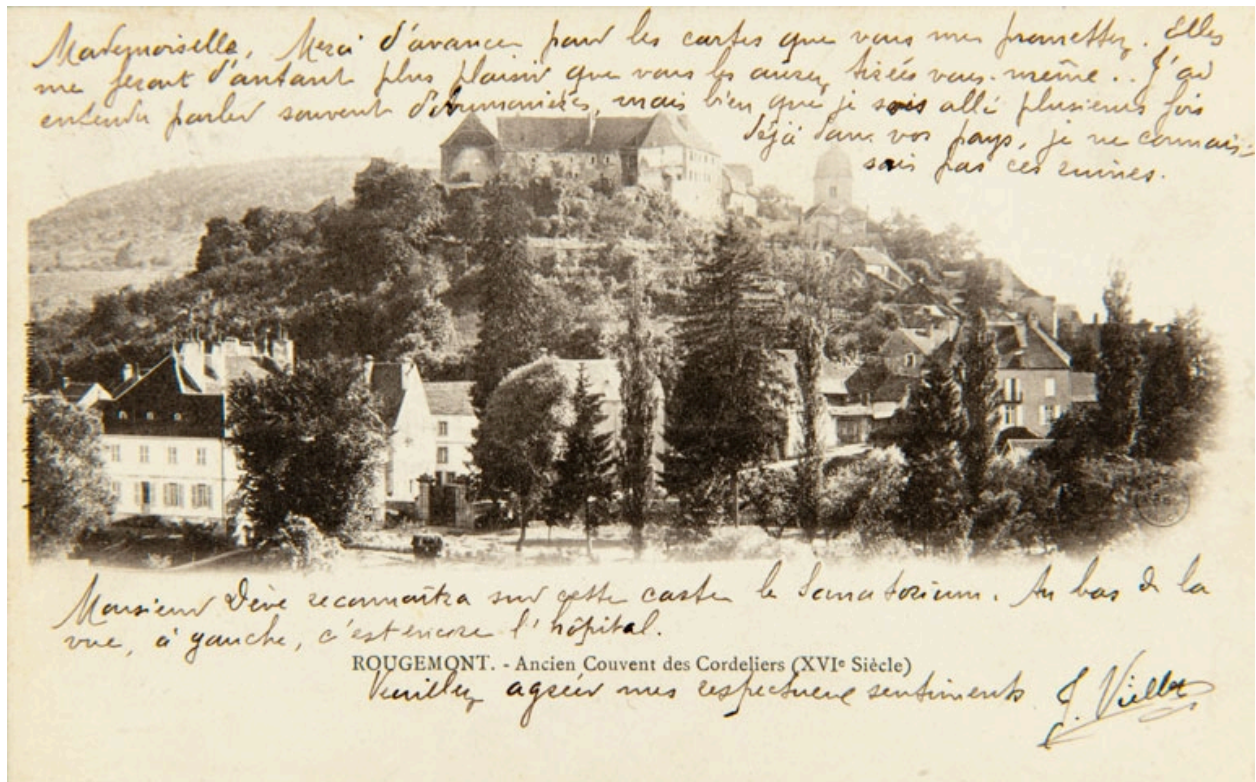 Mademoiselle, Merci d'avance pour les cartes que vous me promettez. Elles
me feront d'autant plus plaisir que vous les aurez tirées vous-même.. J'ai
entendu parler souvent mais bien que je sois allé plusieurs fois
déjà dans vos pays, je ne connais-
sais pas ces ruines.
Monsieur Dève reconnaîtra sur cette carte le Sanatorium. Au bas de la
vue, à gauche, c'est encore l'hôpital.
ROUGEMONT. - Ancien Couvent des Cordeliers (XVIe Siècle)
Veuillez agréer mes respectueux sentiments